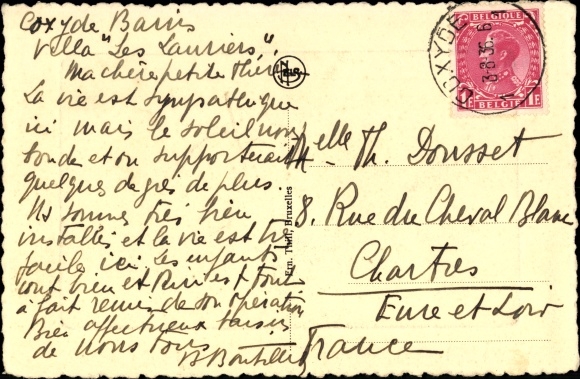 Coxyde Bains
Villa "Les Lauriers".
Ma chère petite Thérèse
La vie est sympathique
ici mais le soleil nous
boude et on supporterait
quelques degrés de plus.
Ns sommes très bien
installés et la vie est très
facile ici. Les enfants
vont bien et Riri est tout
à fait remis de son opération
Bien affectueux baisers
de nous tous
Ern. Thill, Bruxelles
COXYDE
8-8-36
BELGIQUE
1F
BELGIE
1F
Melle Th. Dousset
8. Rue du Cheval Blanc
Chartres
Eure et Loir
France